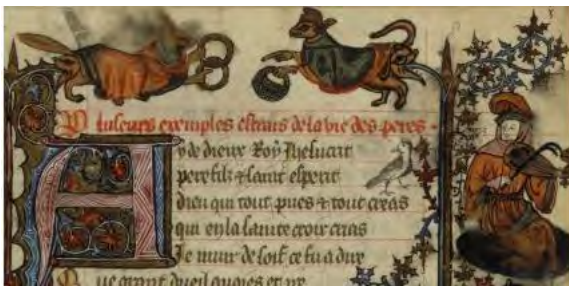 Pluseurs exemples estrais de la vie des peres
Ayde dieux Roy Jhesucrit
pere filz & saint esperit
dieu qui tout pues & tout creas
qui en la sainte croix
Je muir de soif
grant dueil